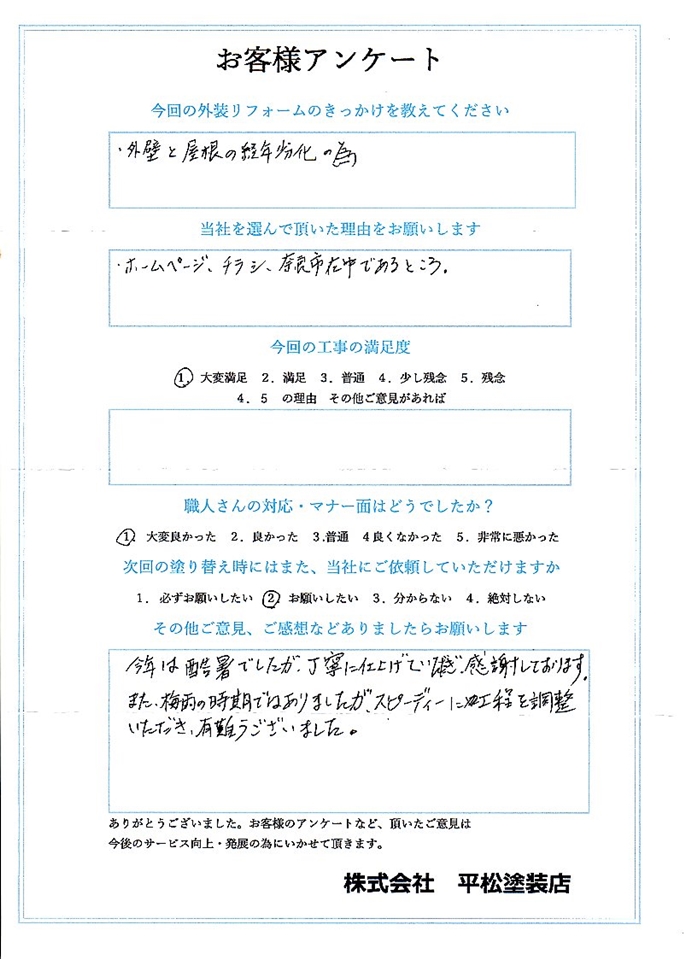 お客様アンケート
今回の外装リフォームのきっかけを教えてください
・外壁と屋根の経年劣化の為
当社を選んで頂いた理由をお願いします
・ホームページ、チラシ、奈良市在中であるところ。
今回の工事の満足度
1. 大変満足 2. 満足 3. 普通 4. 少し残念 5. 残念
4. 5 の理由 その他ご意見があれば
職人さんの対応・マナー面はどうでしたか?
1. 大変良かった 2. 良かった 3.普通 4良くなかった 5. 非常に悪かった
次回の塗り替え時にはまた、当社にご依頼していただけますか
1. 必ずお願いしたい 2 お願いしたい 3. 分からない 4. 絶対しない
その他ご意見、ご感想などありましたらお願いします
今年は酷暑でしたが、丁寧に仕上げていただき、感謝しております。
また、梅雨の時期ではありましたが、スピーディーに工程を調整
いただき、有難うございました。
ありがとうございました。お客様のアンケートなど、頂いたご意見は
今後のサービス向上・発展の為にいかせて頂きます。
株式会社 平松塗装店